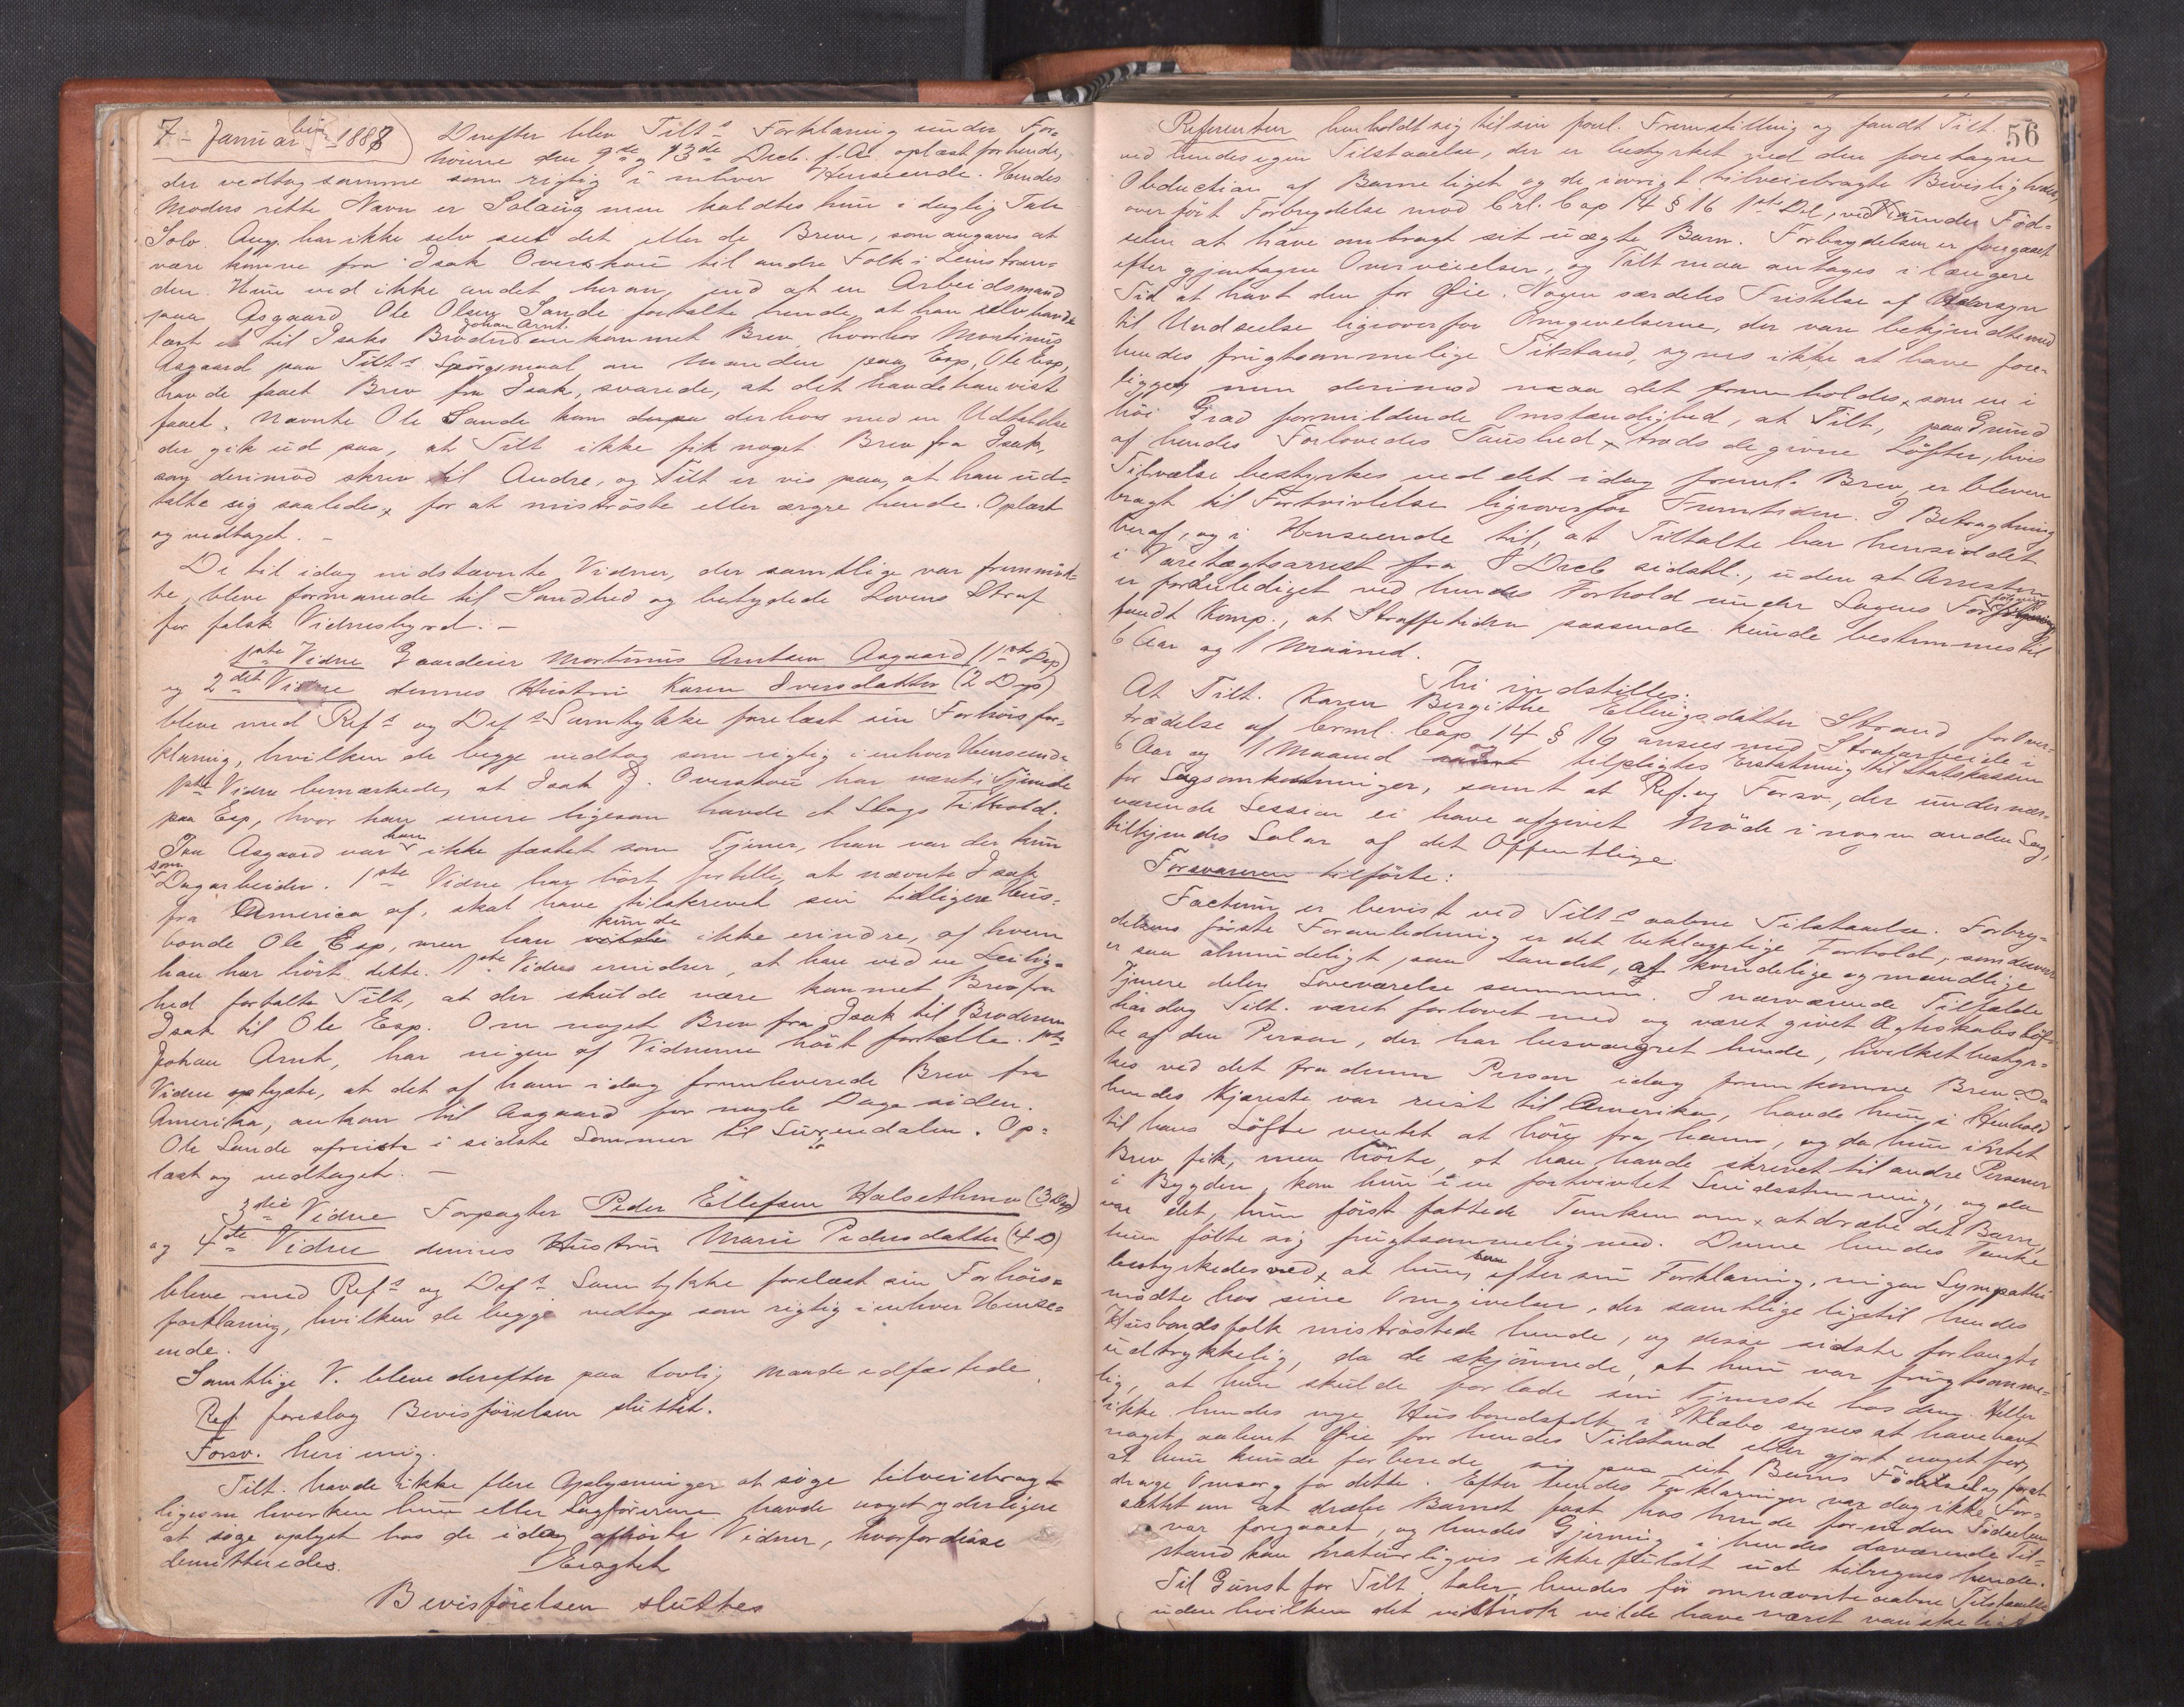 7- Januar 1888 Derefter blev Tilts Forklaring under For-
hørene den 9de og 13de Decb. f. A. oplæst for hende,
der vedtog samme som rigtig i enhver Henseende. Hendes
Moders rette Navn er Solaug men kaldtes hun i daglig Tale
Solv. Ang. har ikke selv seet det eller de Breve, som angaves at
være komne fra Isak Overskou til andre Folk i Leinstran-
den. Hun ved ikke andet heran, end at en Arbeidsmand
paa Asgaard Ole Olsen Sande fortalte hende at han selv havde
læst et til Isaks Broder Johan Arnt ankommet Brev, hvorhos Martinus
Asgaard paa Tilts Spørgsmaal om Manden paa Esp, Ole Esp,
havde faaet Brev fra Isak, svarede, at det havde han vist
faaet. Nævnte Ole Sande kom derhos med en Udtalelse
der gik ud paa, at Tilt ikke fik noget Brev fra Isak,
som derimod skrev til Andre, og Tilt er vis paa, at han ud-
talte sig saaledes, for at mistrøste eller ærgre hende. Oplæst
og vedtaget. -
De til idag indstævnte Vidner, der samtlige var fremmød-
te, bleve formanede til Sandhed og betydede Lovens Straf
for falsk Vidnesbyrd. -
1ste Vidne Gaardeier Martinus Arntsen Asgaard (1ste Dep)
og 2det Vidne dennes Hustru Karen Iversdatter (2 Dep)
bleve med Refs og Defs Samtykke forelæst sin Forhørsfor-
klaring, hvilken de begge vedtog som rigtig i enhver Henseende
1ste Vidne bemærkede, at Isak J. Overskou har været i Tjeneste
paa Esp, hvor han senere ligesom havde et Slags Tilhold.
Paa Asgaard var han ikke fæstet som Tjener, han var der kun
som Dagarbeider. 1ste Vidne har hørt fortælle, at nævnte Isak
fra America af, skal have tilskrevet sin tidligere Hus-
bonde Ole Esp, men han kunde ikke erindre, af hvem
han har hørt dette. 1ste Vidne erindrer, at han ved en Leilig-
hed fortalte Tilt, at der skulde være kommet Brev fra
Isak til Ole Esp. Om noget Brev fra Isak til Broderen
Johan Arnt, har ingen af Vidnerne hørt fortælle. 1ste
Vidne oplyste, at det af ham idag fremleverede Brev fra
Amerika, ankom til Asgaard for nogle Dage siden.
Ole Sande afreiste i sidste Sommer til Surendalen. Op-
læst og vedtaget. -
3die Vidne Forpagter Peder Ellefsen Halsethmo (3 Dep)
og 4de Vidne dennes Hustru Marie Pedersdatter (4 D)
bleve med Refs og Defs Samtykke forelæst sin Forhørs-
forklaring, hvilken de begge vedtog som rigtig i enhver Hense-
ende.
Samtlige V. bleve derefter paa lovlig Maade edfæstede.
Ref foreslog Bevisførelsen sluttet.
Forsv. heri enig.
Tilt. havde ikke flere Oplysninger at søge tilveiebragt
ligesom hverken hun eller Sagførerne havde noget yderligere
at søge oplyst hos de idag afhørte Vidner, hvorfor disse
demitteredes.
Eragtet
Bevisførelsen sluttes
56
Referenten henholdt sig til sin forel. Fremstilling og fandt Tilt.
ved hendes egen Tilstaaelse, der er bestyrket ved den foretagne
Obduction af Barneliget og de iøvrigt tilveiebragte Bevisligheder,
overført Forbrydelse mod Crl. Cap 14 § 16 1ste Del, ved under Fød-
selen at have ombragt sit uægte Barn. Forbrydelsen er foregaaet
efter gjentagne Overveielser, og Tilt maa antages i længere
Tid at havt den for Øie. Nogen særdeles Fristelse af Hensyn
til Undseelse ligeoverfor Omgivelserne, der vare bekjendte med
hendes frugtsommelige Tilstand, synes ikke at have fore-
ligget, men derimod maa det fremholdes, som en i
høi Grad formildende Omstændighed, at Tilt, paa Grund
af hendes Forlovedes Taushed, trods de givne Løfter, hvis
Tilværelse bestyrkes ved det idag freml. Brev, er bleven
bragt til Fortvivlelse ligeoverfor Fremtiden. I Betragtning
heraf, og i Henseende til, at Tiltalte har hensiddet
i Varetægtsarrest fra 8 Decb sidstl., uden at Arresten
er forskyldt ved hendes Forhold under Sagens
fandt Komp., at Straffetiden passende kunde bestemmes til
6 Aar og 1 Maaned.
Thi indstilles:
At Tilt. Karen Bergithe Ellingsdatter Strand for Over-
trædelse af Crml. Cap. 14 § 16 ansees med Strafarbeide i
6 Aar og 1 Maaned og tilpligtes Erstatning til Statskassen
for Sagsomkostninger, samt at Ref. og Forsv., der under nær-
værende Session ei have afgivet Møde i nogen anden Sag,
tilkjendes Salær af det Offentlige.
Forsvareren tilførte:
Factum er bevist ved Tilts aabne Tilstaaelse. Forbry-
delsens første Foranledning er det beklagelige Forhold, som desværre
er saa almindeligt paa Landet, at kvindelige og mandlige
Tjenere delen Soveværelse sammen. I nærværende Tilfælde
har dog Tilt. været forlovet med og været givet Ægteskabsløf-
te af den Person, der har besvangret hende, hvilket bestyr-
kes ved det fra denne Person idag fremkomne Brev. Da
hendes Kjæreste var reist til Amerika, havde hun i Henhold
til hans Løfte ventet at høre fra ham, og da hun intet
Brev fik, men hørte, at han havde skrevet til andre Personer
i Bygden, kom hun i en fortvivlet Sindsstemning, og da
var det, hun først fattede Tanken om, at dræbe det Barn,
hun følte sig frugtsommelig med. Denne hendes Tanke
bestyrkedes ved, at hun, efter sin Forklaring, ingen Sympathi
mødte hos sine Omgivelser, der samtlige ligetil hendes
Husbondsfolk mistrøstede hende, og disse sidste forlangte
udtrykkelig, da de skjønnede, at hun var frugtsomme-
lig, at hun skulde forlade sin Tjeneste hos dem. Heller
ikke hendes nye Husbondsfolk i Klæbo synes at have havt
noget aabent Øie for hendes Tilstand eller gjort noget for,
at hun kunde forberede sig paa sit Barns Fødsel og for at
drage Omsorg for dette. Efter hendes Forklaringer var dog ikke For-
sættet om at dræbe Barnet fast hos hende før end Fødselen
var foregaaet, og hendes Gjerning i hendes daværende Til-
stand kan naturligvis ikke fuldt ud tilregnes hende.
Til Gunst for Tilt. taler hendes før omnævnte aabne Tilstaaelse
uden hvilken det vistnok vilde have været vanskeligt